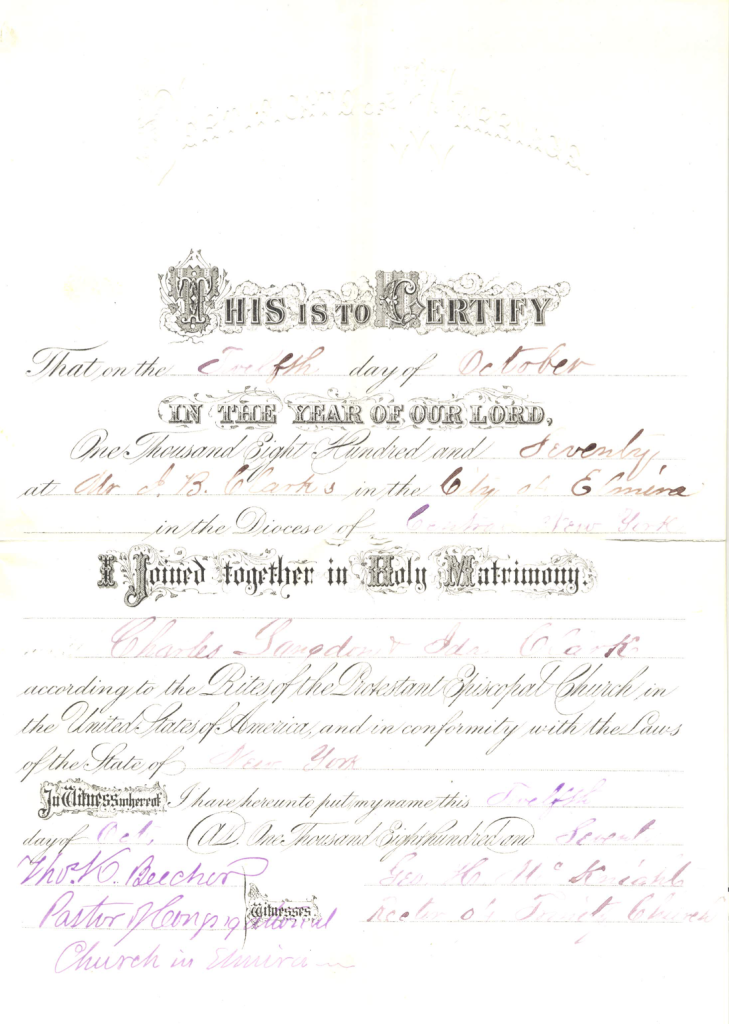 THIS IS TO CERTIFY
That on the Twelfth day of October
IN THE YEAR OF OUR LORD,
One Thousand Eight Hundred and Seventy
at Mr J. B. Clark's in the City of Elmira
in the Diocese of Central New York
I Joined together in Holy Matrimony.
Charles Langdon & Ida Clark
according to the Rites of the Protestant Episcopal Church in
the United States of America, and in conformity with the Laws
of the State of New York
In Witness whereof I have hereunto put my name this Twelfth
day of Oct. A.D. One Thousand Eight hundred and Seventy
Thos. K. Beecher Geo. H. McKnight
Pastor of Congregational Witnesses Rector of Trinity Church
Church in Elmira